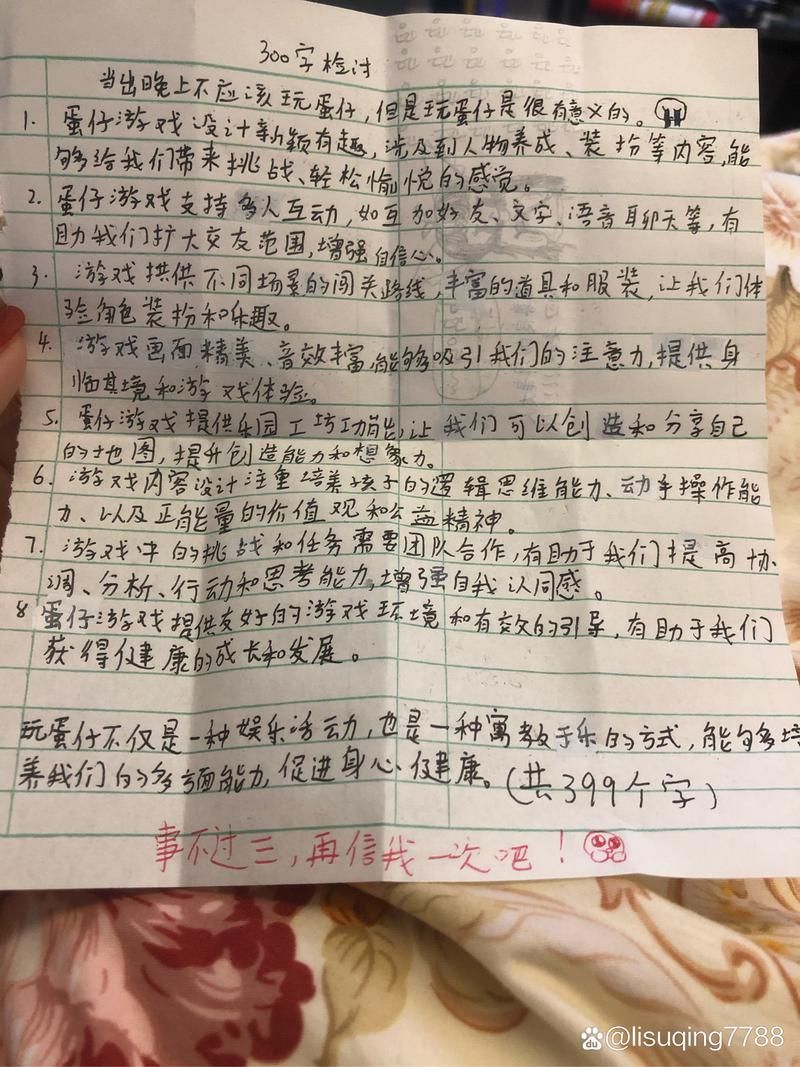 300字检讨
当出晚上不应该玩蛋仔，但是玩蛋仔是很有意义的。
1. 蛋仔游戏设计新颖有趣，涉及到人物养成、装扮等内容，能
够给我们带来挑战、轻松愉悦的感觉。
2. 蛋仔游戏支持多人互动，如互加好友、文字、语音聊天等，有
助我们扩大交友范围，增强自信心。
3. 游戏拱供不同场景的闯关路线，丰富的道具和服装，让我们体
验角色装扮和乐趣。
4. 游戏画面精美、音效丰富，能够吸引我们的注意力，提供身
临其境和游戏体验。
5. 蛋仔游戏提供乐园工坊功能，让我们可以创造和分享自己
的地图，提升创造能力和想象力。
6. 游戏内容设计注重培养孩子的逻辑思维能力、动手操作能
力、以及正能量的价值观和公益精神。
7. 游戏中的挑战和任务需要团队合作，有助于我们提高协
调、分析、行动和思考能力，增强自我认同感。
8 蛋仔游戏提供友好的游戏环境和有效的引导，有助于我们
获得健康的成长和发展。
玩蛋仔不仅是一种娱乐活动，也是一种寓教于乐的方式，能够培
养我们的多方面能力，促进身心健康。（共399个字）
事不过三，再信我一次吧！
Bai du @lisuqing7788